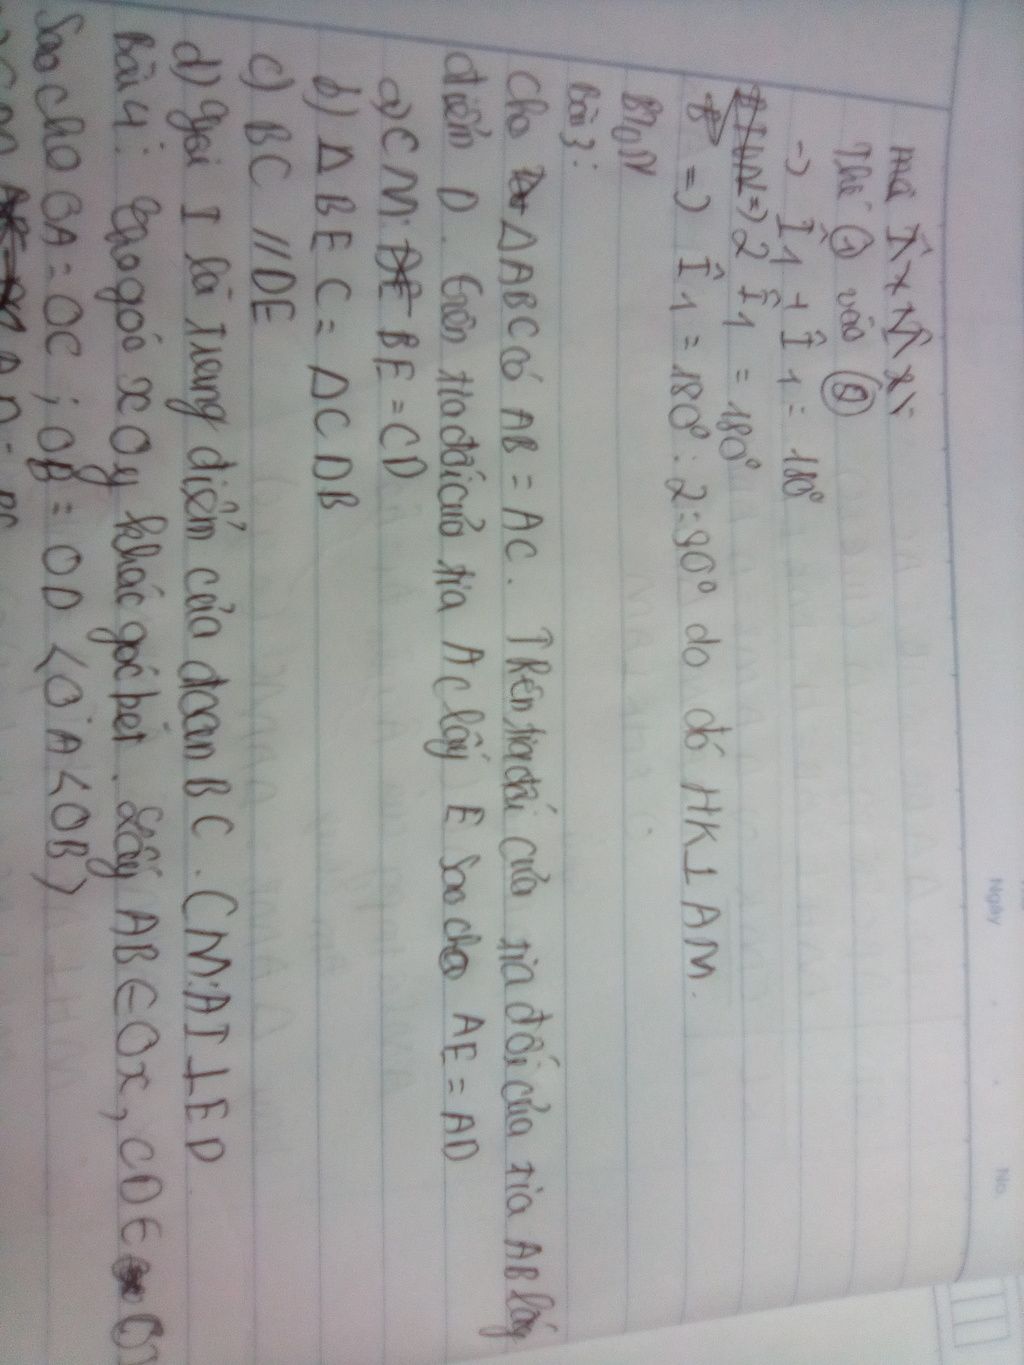 Ngày
No.
mà Î x M̂ x
Thế ① vào ②
=) Î1 + Î1 = 180°
=) 2 Î1 = 180°
=) Î1 = 180° : 2 = 90° do đó HK ⊥ AM.
Bài 3:
Cho ΔABC có AB = AC. Trên tia đối của tia đối của tia AB lấy
điểm D. Trên tia đối của tia AC lấy E sao cho AE = AD
a) CM: BE = CD
b) Δ BEC = ΔCDB
c) BC // DE
d) gọi I là trung điểm của đoạn BC. CM: AI ⊥ ED
Bài 4: Cho góc xOy khác góc bẹt. Lấy AB ∈ Ox, CD ∈
sao cho OA = OC ; OB = OD (OA < OB)